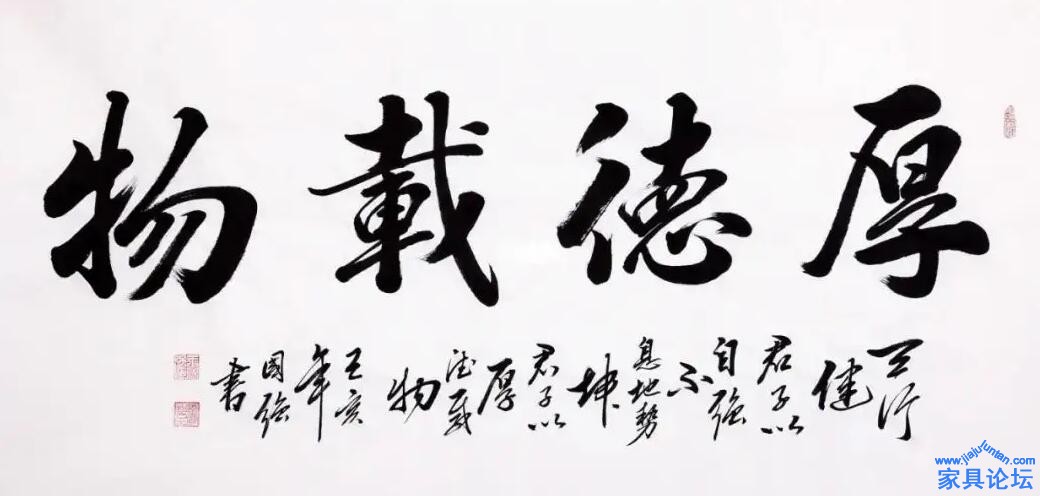 厚德載物
天行
健
君子以
自強
不
息地勢
坤
君子以
厚
德載
物
亥
年
國強
書
www.jiajuluntan.com
家具论坛